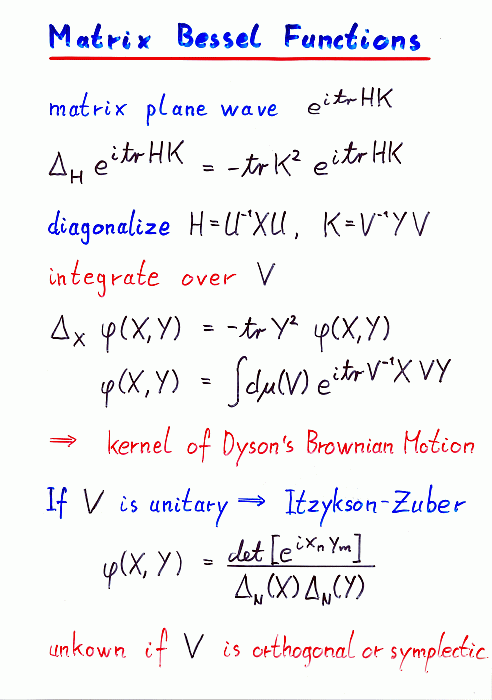 Matrix Bessel Functions
matrix plane wave e^{i tr HK}
Δ_H e^{i tr HK} = -tr K² e^{i tr HK}
diagonalize H=U⁻¹XU, K=V⁻¹YV
integrate over V
Δ_X φ(X,Y) = -tr Y² φ(X,Y)
φ(X,Y) = ∫dμ(V) e^{i tr V⁻¹XVY}
⇒ kernel of Dyson's Brownian Motion
If V is unitary ⇒ Itzykson-Zuber
φ(X,Y) = det[e^{i x_n y_m}] / Δ_N(X) Δ_N(Y)
unkown if V is orthogonal or symplectic